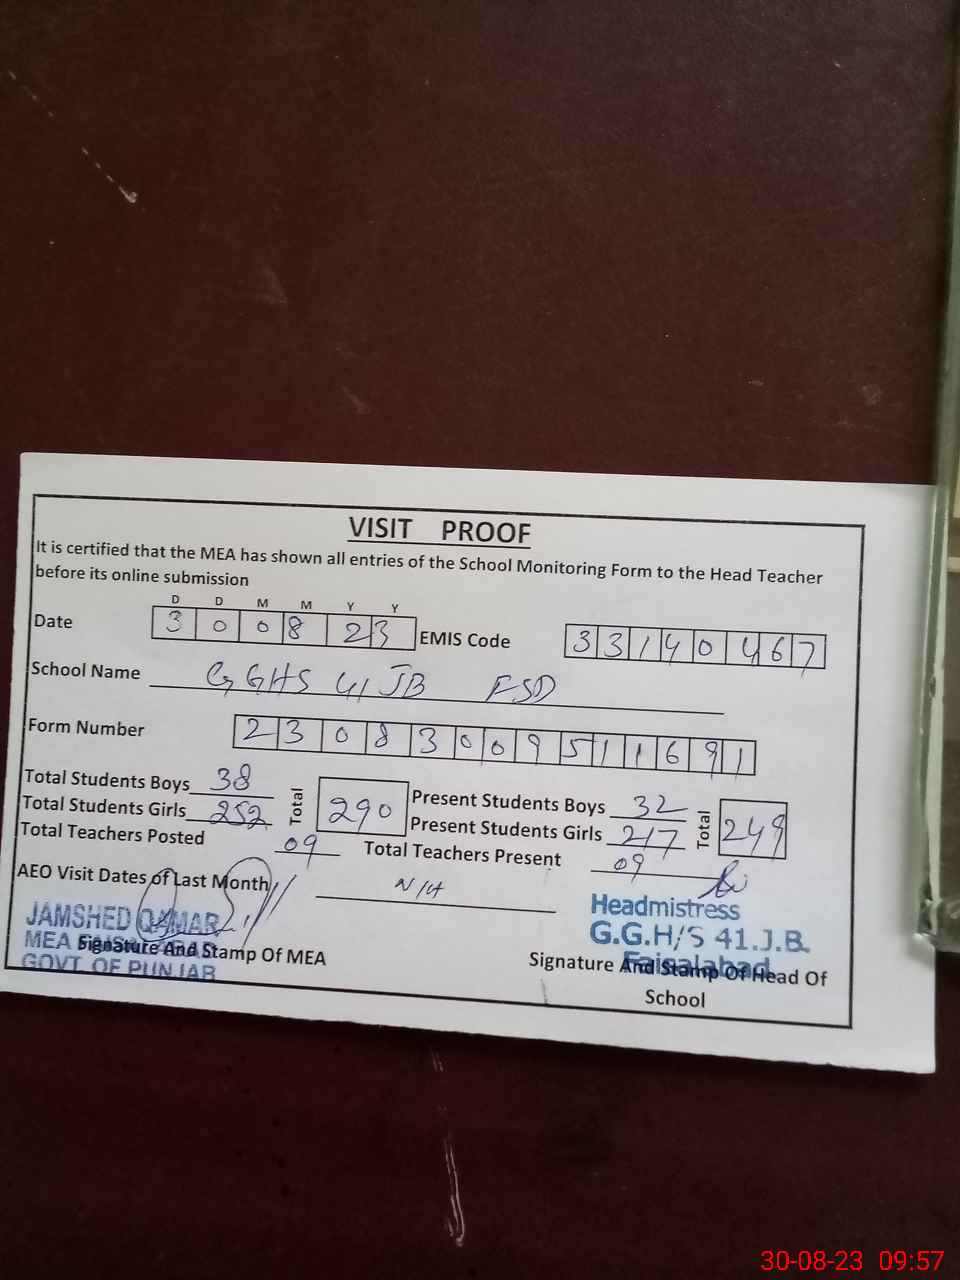 VISIT PROOF
It is certified that the MEA has shown all entries of the School Monitoring Form to the Head Teacher
before its online submission
D D M M Y Y
Date 3 0 0 8 2 3 EMIS Code 3 3 1 4 0 4 6 7
School Name GGHS 41 JB FSD
Form Number 2 3 0 8 3 0 0 9 5 1 1 6 9 1
Total Students Boys 38 Total 290 Present Students Boys 32 Total 249
Total Students Girls 252 Present Students Girls 217
Total Teachers Posted 09 Total Teachers Present 09
AEO Visit Dates of Last Month N/A
JAMSHED QAMAR
MEA FAISALABAD
GOVT OF PUNJAB
Signature And Stamp Of MEA
Headmistress
G.G.H/S 41.J.B.
Faisalabad
Signature And Stamp Of Head Of
School
30-08-23 09:57